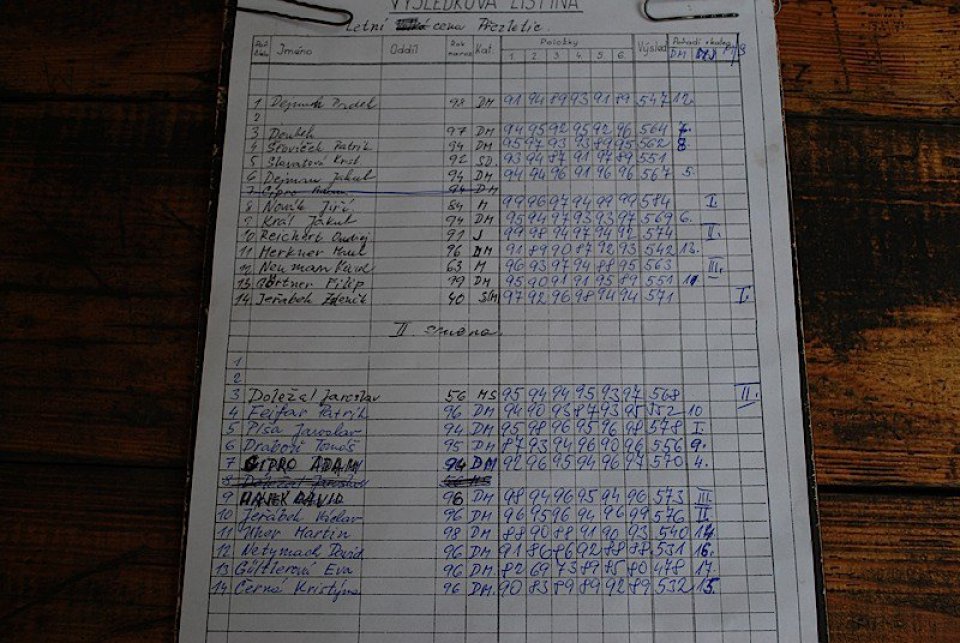 VÝSLEDKOVÁ LISTINA
Letní cena Přezletic.
Jméno Oddíl Rok naroz. Kat. Položky Výsled Pořadí v kateg.
1 2 3 4 5 6 DM
1 98 DM 91 94 89 93 91 89 547 12.
2
3 97 DM 94 95 92 95 92 96 564 7.
4 Patrik 94 DM 95 97 93 93 89 95 562 8.
5 92 93 94 87 91 97 89 551
6 Dejman Jakub 94 DM 94 94 96 91 96 96 567 5.
7 Cipro 94 DM
8 Novák Jiří 84 M 99 96 97 94 99 99 584 I.
9 Král Jakub 94 DM 95 94 97 93 93 97 569 6.
10 Reichert Ondřej 91 J 99 98 94 97 94 92 574 II.
11 Merkner 96 DM 91 89 90 87 92 93 542 13.
12 Neuman Karel 63 M 96 93 97 94 88 95 563 III.
13 Gőrtner Filip 99 DM 95 90 91 91 95 89 551 11.
14 Jeřábek Zdeněk 40 97 92 96 98 94 94 571 I.
II. směna.
1
2
3 Doležal Jaroslav 56 MS 95 94 94 95 93 97 568 II.
4 Fejfar Patrik 96 DM 94 90 93 87 93 95 552 10
5 Písa Jaroslav 94 DM 95 98 96 95 96 98 578 I.
6 Tomáš 95 DM 87 93 94 96 90 96 556 9.
7 CIPRO ADAM 94 DM 92 96 95 94 96 97 570 4.
8 Doležal Jaroslav
9 HÁJEK DAVID 96 DM 98 94 96 95 94 96 573 III.
10 Jeřábek Václav 96 DM 96 95 96 94 96 99 576 II.
11 Uher Martin 98 DM 88 90 88 91 90 93 540 14.
12 Netymach David 96 DM 91 86 86 92 88 88 531 16.
13 Gültlerová Eva 96 DM 82 69 73 89 85 80 478 17.
14 Černá Kristýna 96 DM 90 83 89 89 92 89 532 15.